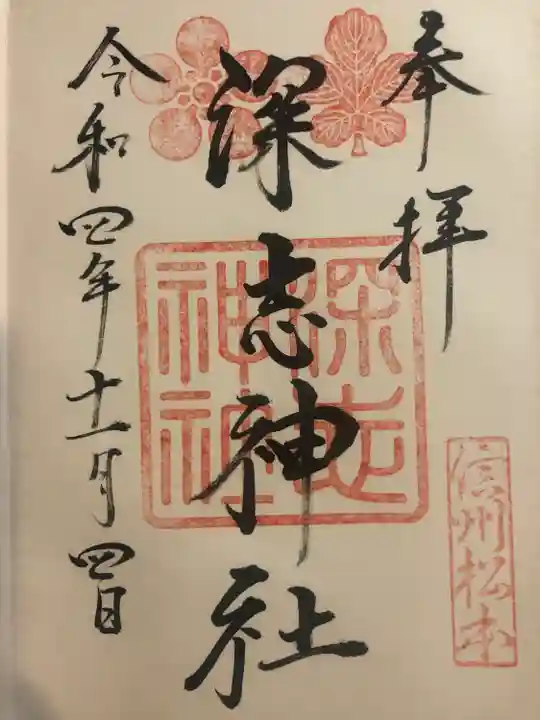 奉拝
深志神社
深志神社
信州松本
令和四年十一月四日